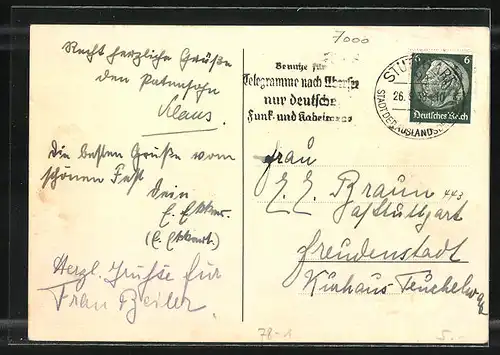 7000
Recht herzliche Grüße
den Patensohn
Klaus.
Die besten Grüße vom
schönen Fest
Dein
E. Ekker.
(E. Ekkert.)
Herzl. Grüße für
Frau Beiler.
Benutze für
Telegramme nach Übersee
nur deutsche
Funk- und Kabelwege
STUTTGART
26.
STADT DER AUSLANDSD
6
Deutsches Reich
Frau
E. E. Braun
Stuttgart
Freudenstadt
Kurhaus Teuchelw
78-1
5.-